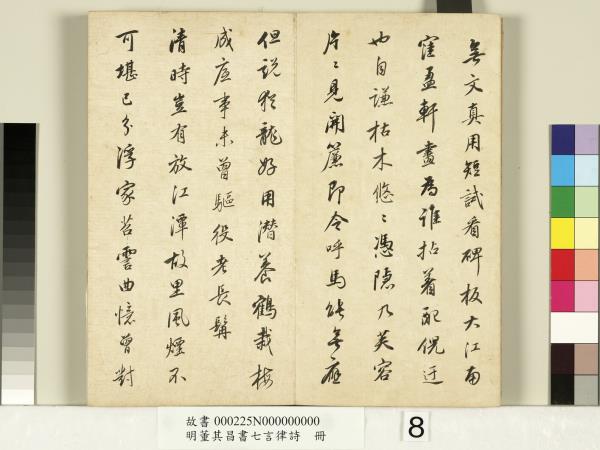 無文真用短試看碑板大江南
窪盈軒畫為誰拈着配倪迂
也自謙枯木悠〻憑隱乃芙容
片〻見開簾即令呼馬能無應
但説猶龍好用潛養鶴栽梅
成底事未曾驅役老長髯
清時豈有放江潭故里風煙不
可堪已分浮家苕霅曲憶曾對
故書 000225N000000000
明董其昌書七言律詩 冊
8